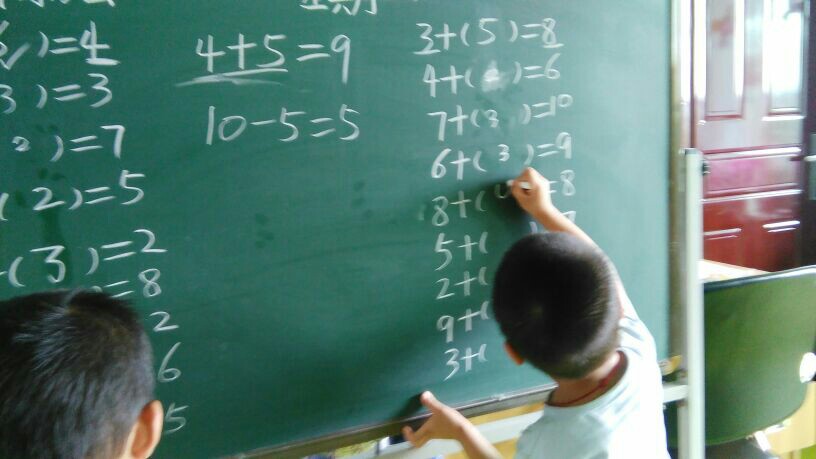 )=4
3 )=3
2 )=7
( 2 )=5
-( 3 )=2
=8
2
6
5
4+5=9
10-5=5
星期
3+(5)=8
4+(2)=6
7+(3 )=10
6+( 3 )=9
8+( =8
5+(
2+(
9+(
3+(